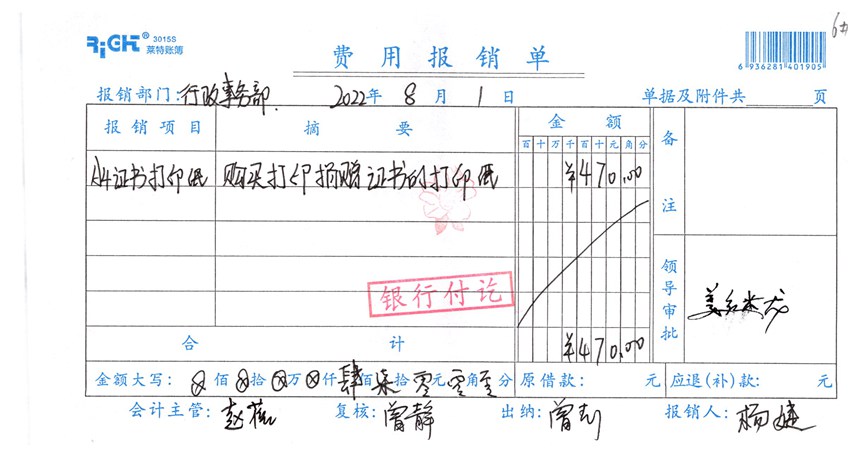 6#
RiGHT® 3015S
莱特账簿
费用报销单
6 936281 401905
报销部门:行政事务部 2022年 8 月 1 日 单据及附件共 页
报销项目 摘要 金额 备注
百十万千百十元角分
A4证书打印纸 购买打印捐赠证书的打印纸 ¥470.00
银行付讫
领导审批
合计 ¥470.00
金额大写: ⊗佰⊗拾⊗万⊗仟肆佰柒拾零元零角零分 原借款: 元 应退(补)款: 元
会计主管: 赵 复核: 曾静 出纳: 曾 报销人: 杨婕